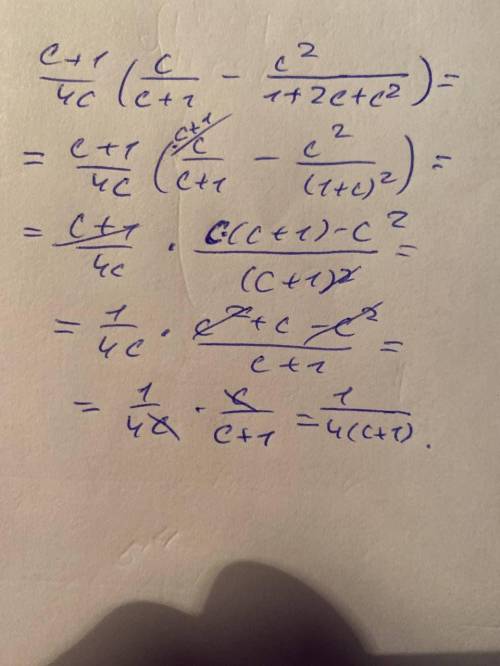 \frac{c+1}{4c} \left( \frac{c}{c+1} - \frac{c^2}{1+2c+c^2} \right) =
= \frac{c+1}{4c} \left( \frac{\overset{c+1}{c}}{c+1} - \frac{c^2}{(1+c)^2} \right) =
= \frac{\cancel{c+1}}{4c} \cdot \frac{c(c+1)-c^2}{(c+1)^{\cancel{2}}} =
= \frac{1}{4c} \cdot \frac{\cancel{c^2}+c-\cancel{c^2}}{c+1} =
= \frac{1}{4\cancel{c}} \cdot \frac{\cancel{c}}{c+1} = \frac{1}{4(c+1)}.